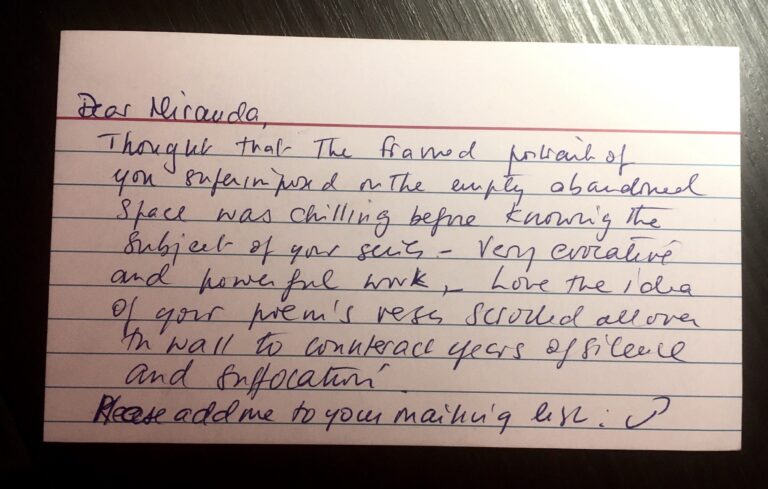 Dear Miranda,
Thought that the framed portrait of
you superimposed on the empty abandoned
space was chilling before knowing the
subject of your series - Very evocative
and powerful work, - Love the idea
of your poem's verses scrolled all over
th wall to counteract years of silence
and suffocation.
Please add me to your mailing list :)